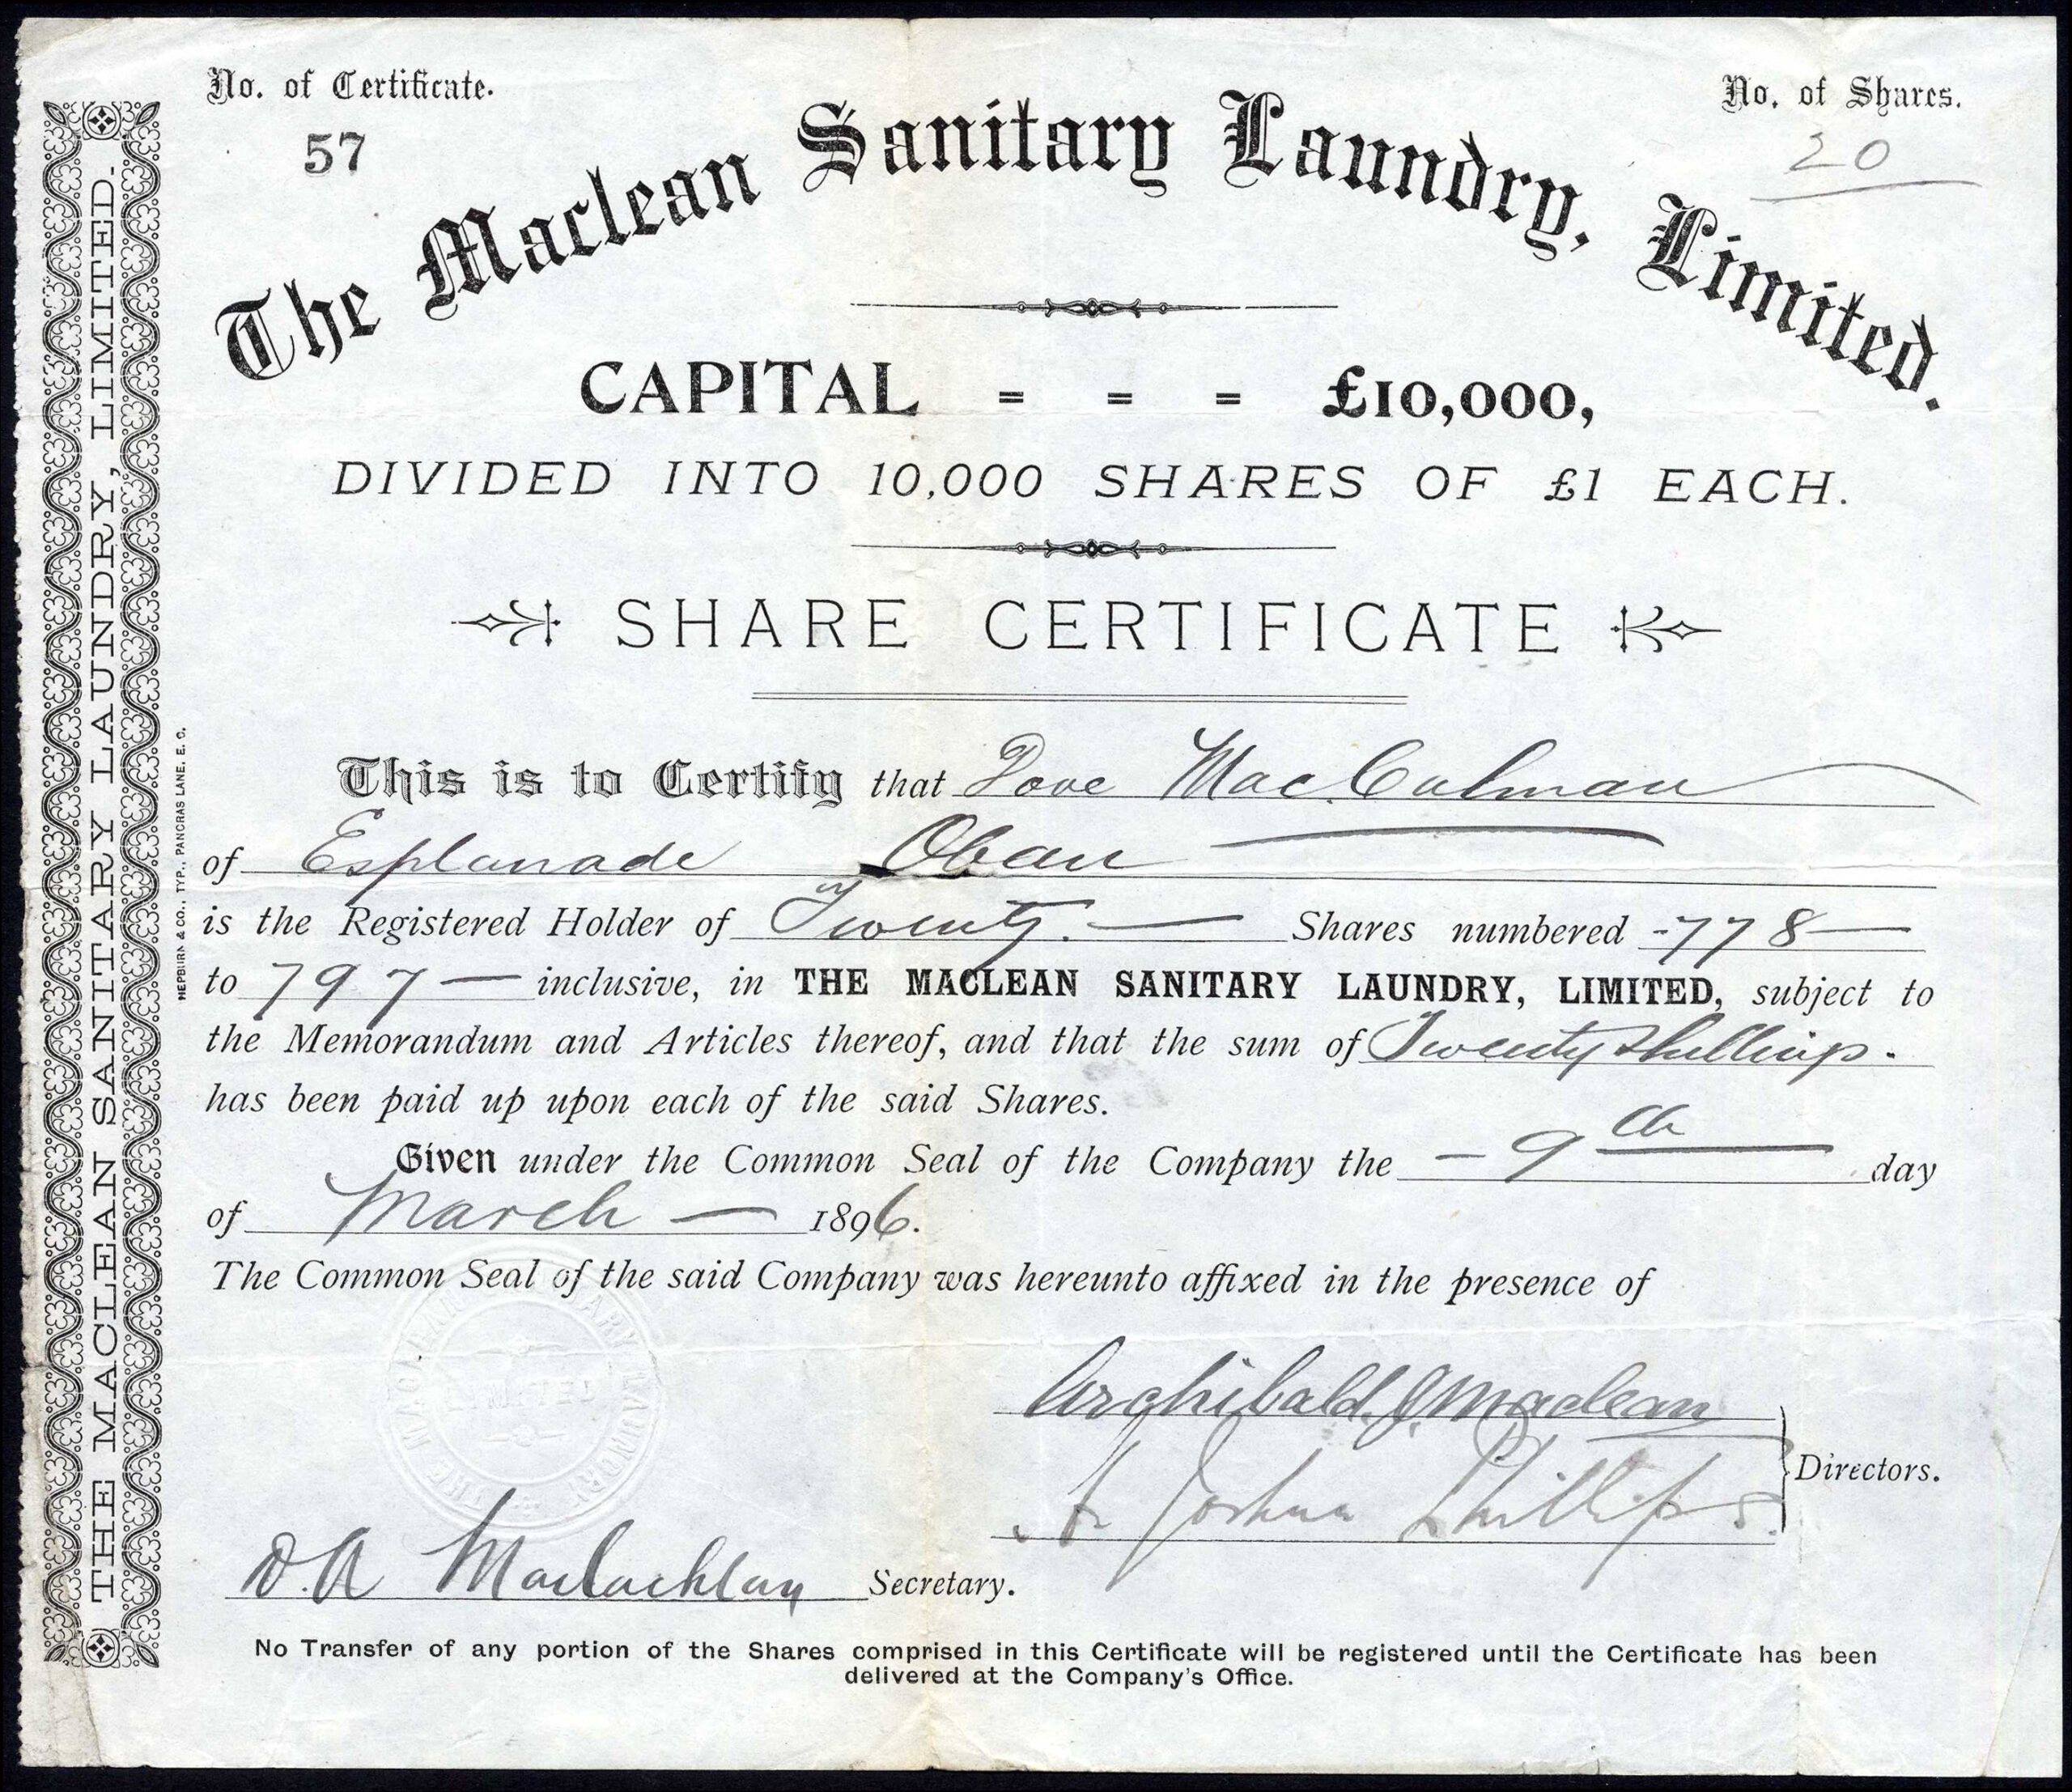 No. of Certificate.
57
No. of Shares.
20
The Maclean Sanitary Laundry, Limited.
CAPITAL = = = £10,000,
DIVIDED INTO 10,000 SHARES OF £1 EACH.
SHARE CERTIFICATE
This is to Certify that Dove MacCalman
of Esplanade Oban
is the Registered Holder of Twenty. — Shares numbered -778—
to 797— inclusive, in THE MACLEAN SANITARY LAUNDRY, LIMITED, subject to
the Memorandum and Articles thereof, and that the sum of Twenty Shillings.
has been paid up upon each of the said Shares.
Given under the Common Seal of the Company the — 9th — day
of March — 1896.
The Common Seal of the said Company was hereunto affixed in the presence of
Archibald J. Maclean
Joshua Phillips
Directors.
D. A Maclachlan Secretary.
No Transfer of any portion of the Shares comprised in this Certificate will be registered until the Certificate has been
delivered at the Company's Office.
THE MACLEAN SANITARY LAUNDRY, LIMITED.
HEPBURN & CO., TYP., PANCRAS LANE. E. C.
THE MACLEAN SANITARY LAUNDRY
LIMITED